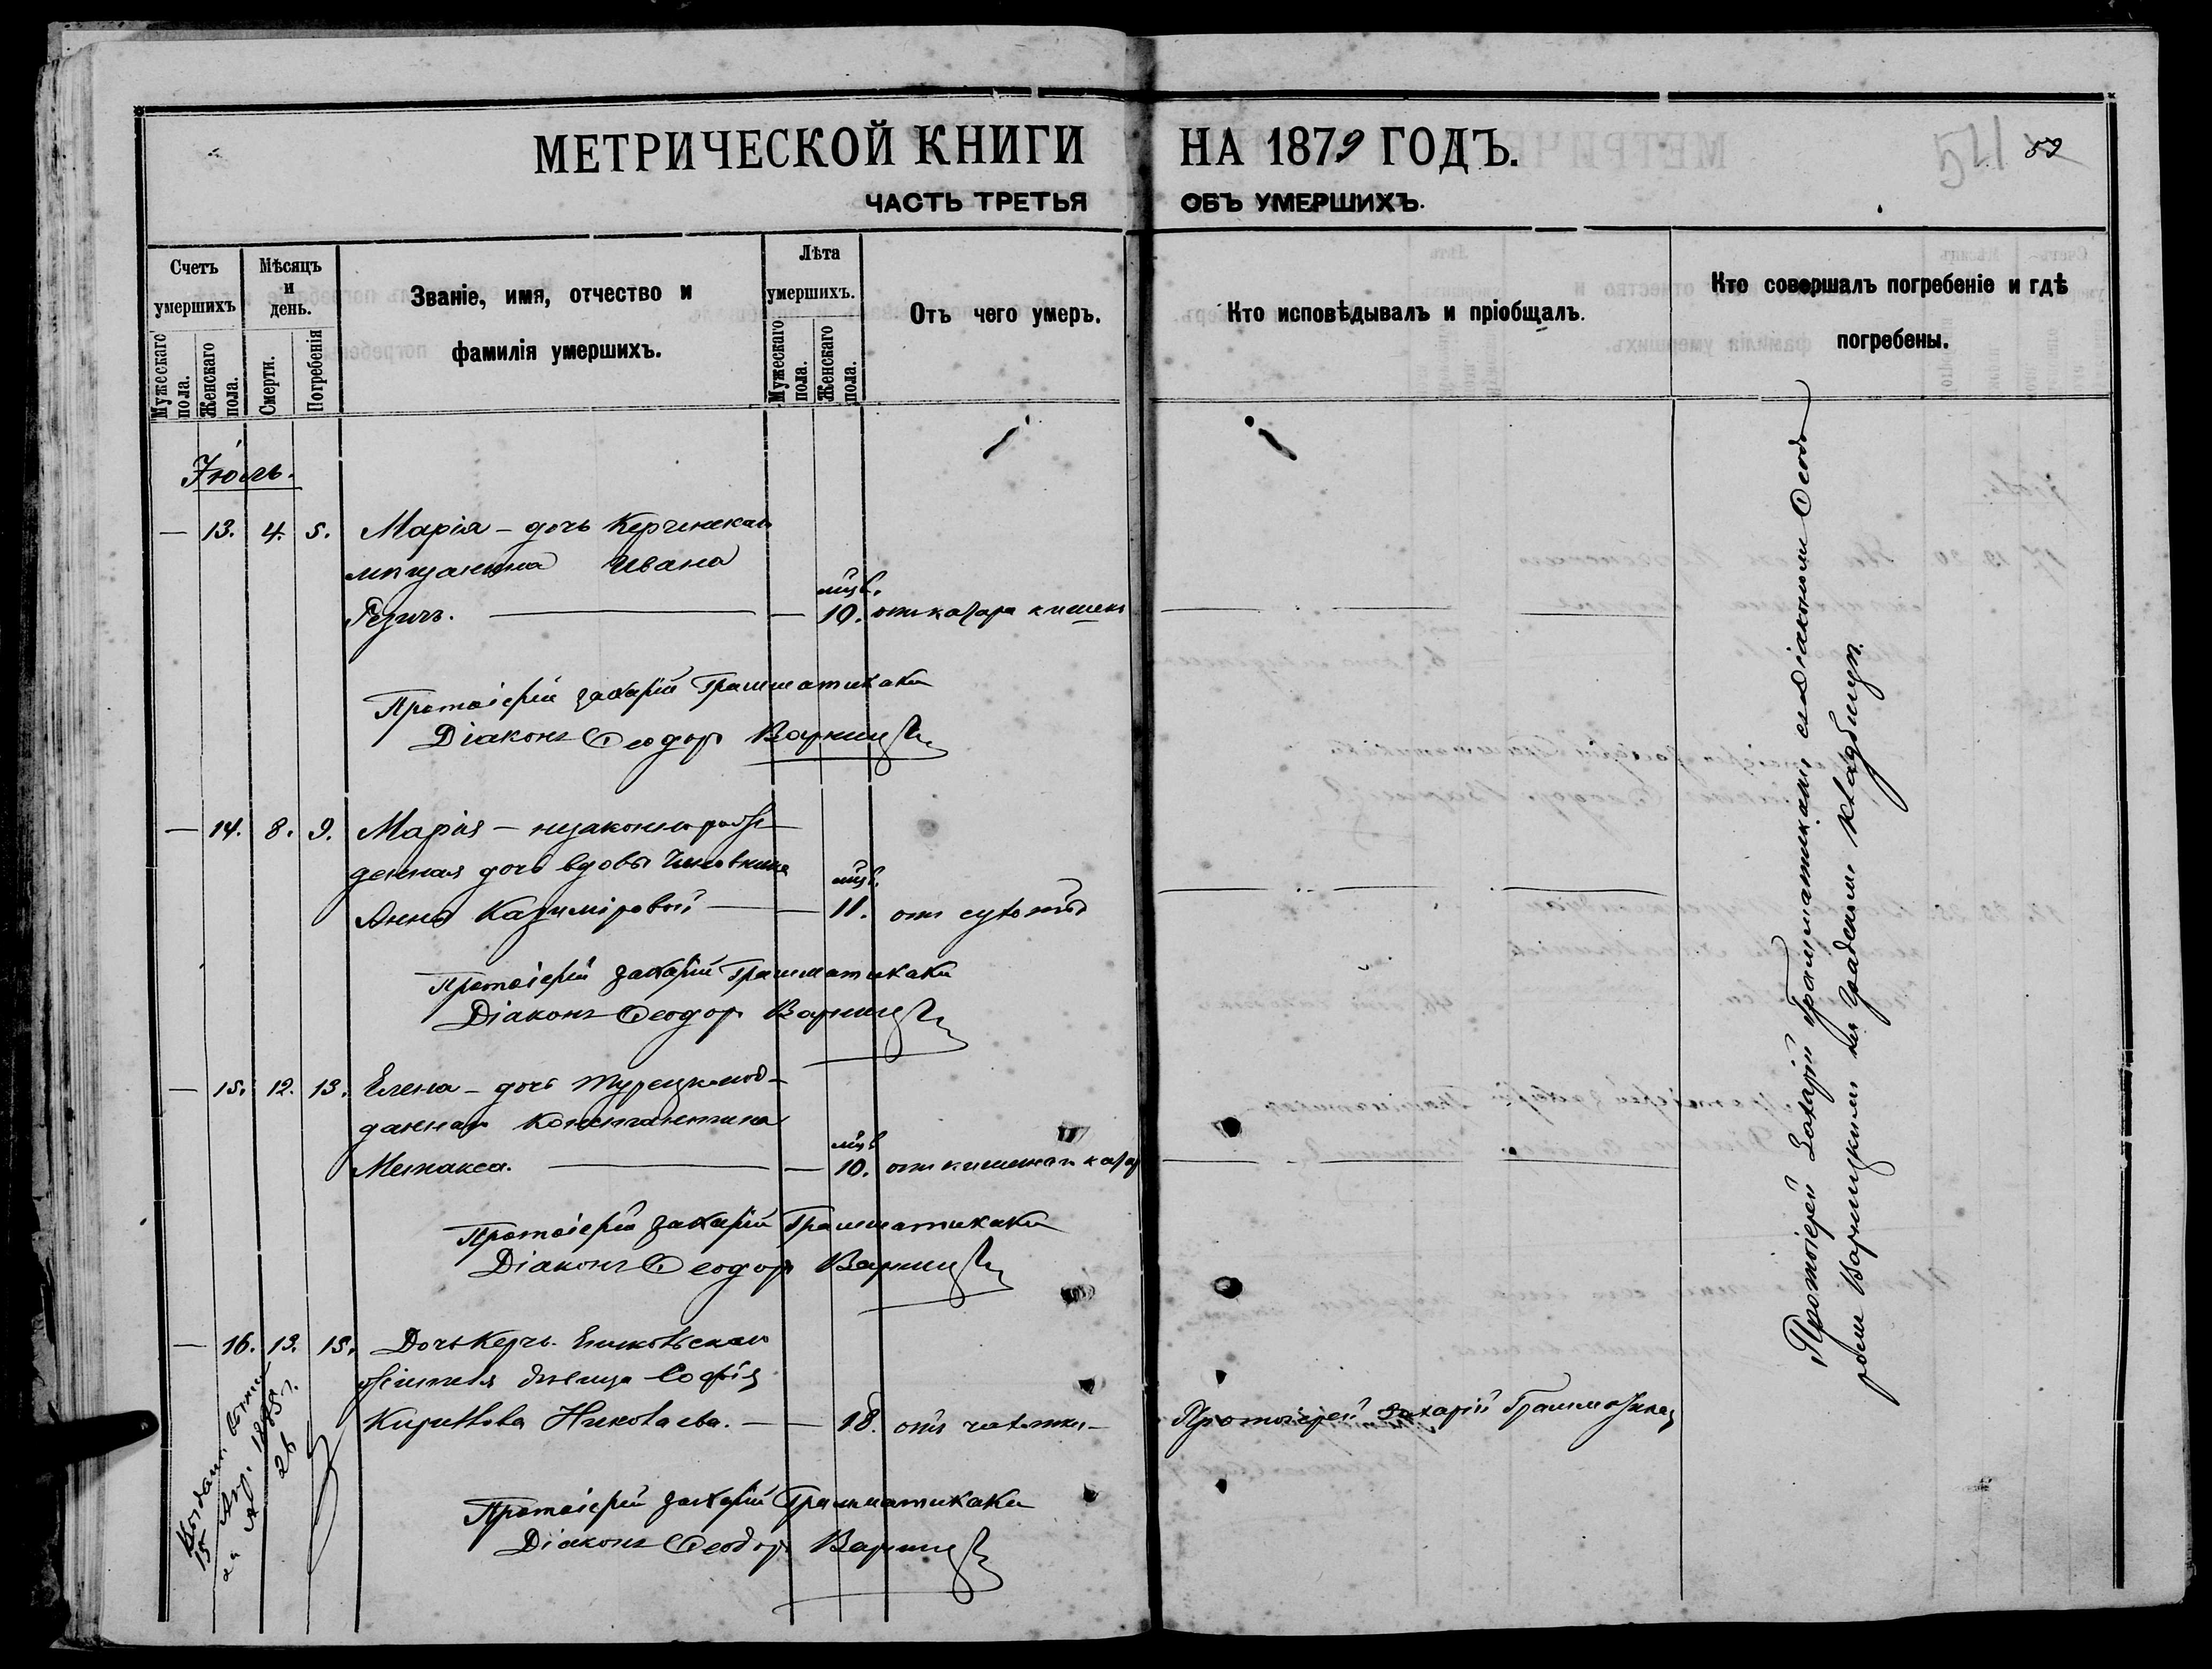 МЕТРИЧЕСКОЙ КНИГИ НА 1879 ГОДЪ.
59
ЧАСТЬ ТРЕТЬЯ ОБЪ УМЕРШИХЪ.
Счетъ умершихъ
Мужескаго пола.
Женскаго пола.
Мѣсяцъ и день.
Смерти.
Погребенія
Званіе, имя, отчество и
фамилія умершихъ.
Лѣта умершихъ.
Мужескаго пола.
Женскаго пола.
Отъ чего умеръ.
Кто исповѣдывалъ и пріобщалъ.
Кто совершалъ погребеніе и гдѣ
погребены.
Іюль.
— 13. 4. 5. Марія – дочь Керченскаго
мѣщанина Ивана
мѣс.
— 10. отъ катара кишекъ
Протоіерей Захарій Грамматикаки
Діаконъ Ѳеодоръ Варницкій
— 14. 8. 9. Марія – незаконнорож-
денная дочь вдовы чиновника
мѣс.
Анны Казиміровой — — 11. отъ сухотки
Протоіерей Захарій Грамматикаки
Діаконъ Ѳеодоръ Варницкій
— 15. 12. 13. Елена – дочь турецко-под-
даннаго Константина
мѣс.
— 10. отъ кишечнаго катар
Протоіерей Захарій Грамматикаки
Діаконъ Ѳеодоръ Варницкій
— 16. 13. 15. Дочь Керчь-Еникольскаго
жителя дѣвица Софія
Кириллова Николаева. — — 18. отъ чахотки – Протоіерей Захарій Грамматикаки
Протоіерей Захарій Грамматикаки
Діаконъ Ѳеодоръ Варницкій
15 Апр. 1885 г.
26
Протоіерей Захарій Грамматикаки съ Діакономъ Ѳеодо
ромъ Варницкимъ на градскомъ кладбищѣ.